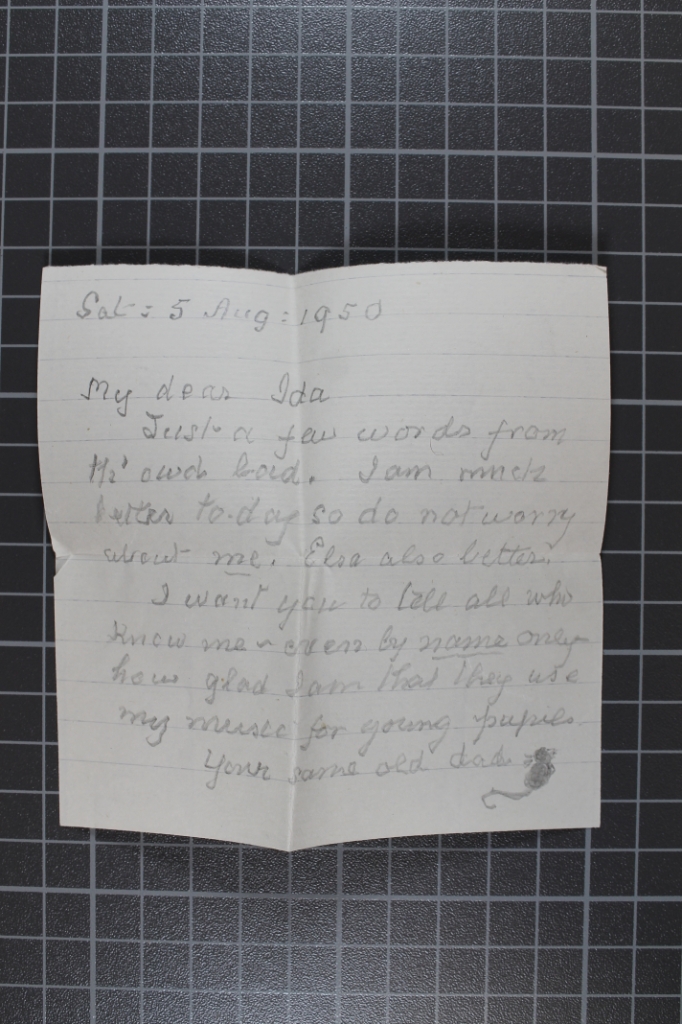 Sat: 5 Aug: 1950
My dear Ida
Just a few words from
th' owd lad. I am much
better to-day so do not worry
about me. Elsa also better.
I want you to tell all who
know me - even by name only -
how glad I am that they use
my music for young pupils
Your same old dad